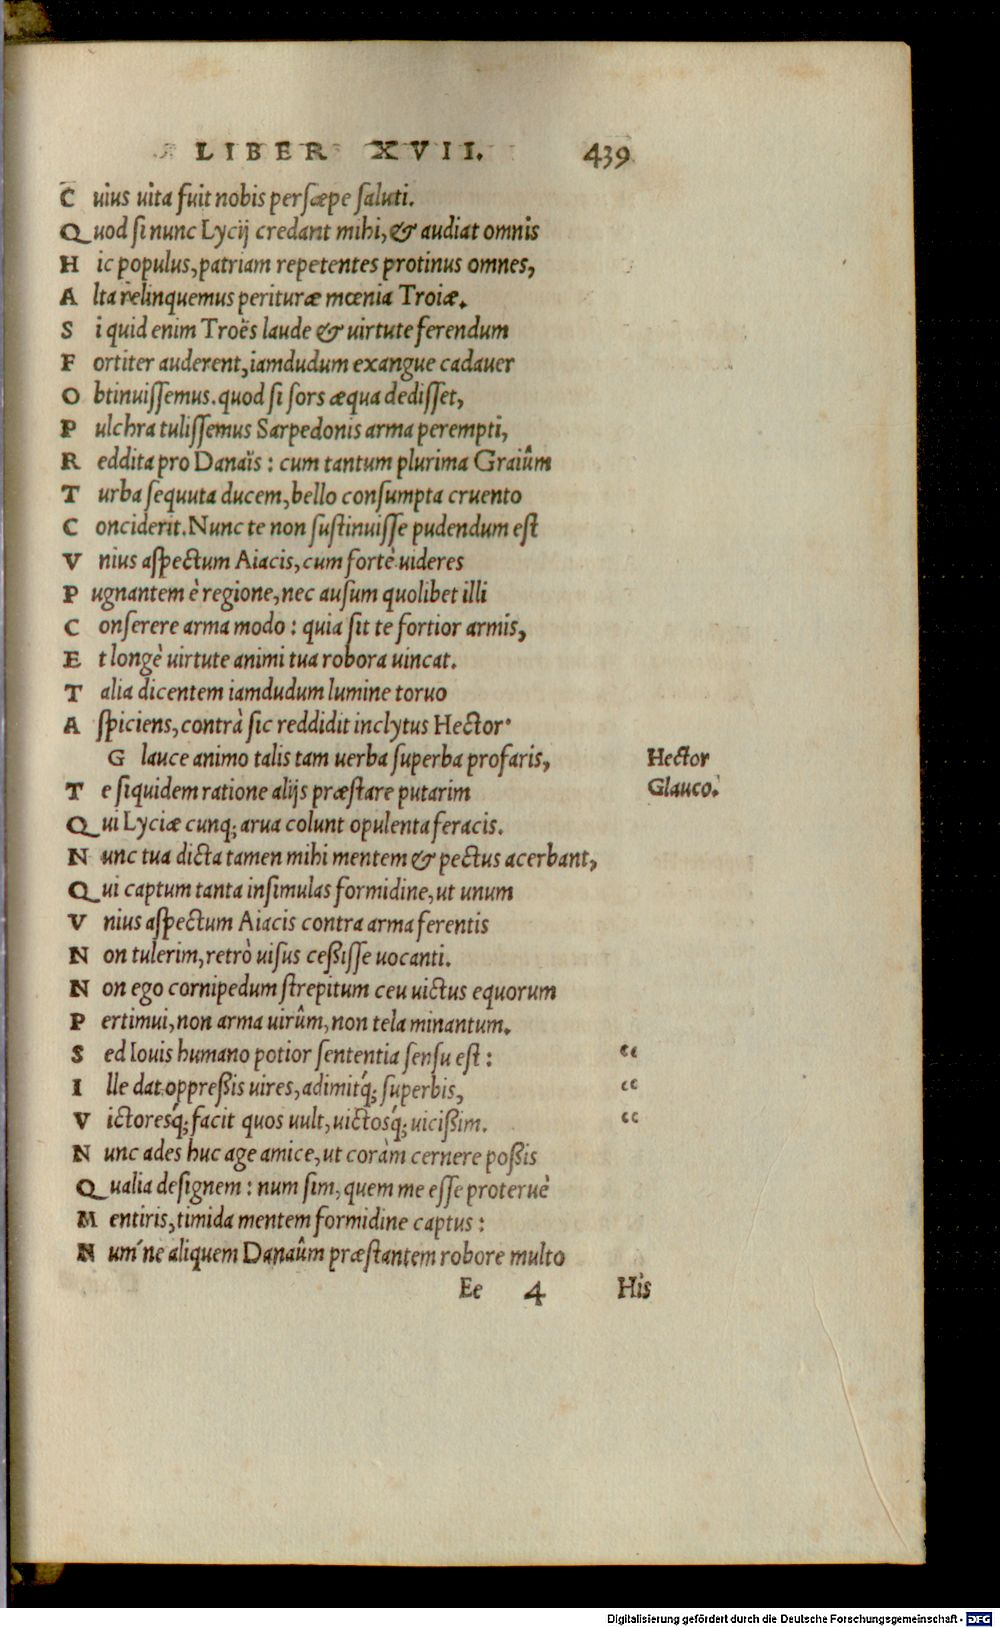 LIBER XVII. 439
Cuius uita fuit nobis persæpe saluti.
Quod si nunc Lycij credant mihi, & audiat omnis
Hic populus, patriam repetentes protinus omnes,
Alta relinquemus perituræ mœnia Troiæ.
Si quid enim Troës laude & uirtute ferendum
Fortiter auderent, iamdudum exangue cadauer
Obtinuissemus. quod si sors æqua dedisset,
Pulchra tulissemus Sarpedonis arma perempti,
Reddita pro Danaïs: cum tantum plurima Graiûm
Turba sequuta ducem, bello consumpta cruento
Conciderit. Nunc te non sustinuisse pudendum est
Vnius aspectum Aiacis, cum fortè uideres
Pugnantem è regione, nec ausum quolibet illi
Conserere arma modo: quia sit te fortior armis,
Et longè uirtute animi tua robora uincat.
Talia dicentem iamdudum lumine toruo
Aspiciens, contrà sic reddidit inclytus Hector·
Glauce animo talis tam uerba superba profaris, Hector
Te siquidem ratione alijs præstare putarim Glauco.
Qui Lyciæ cunq; arua colunt opulenta feracis.
Nunc tua dicta tamen mihi mentem & pectus acerbant,
Qui captum tanta insimulas formidine, ut unum
Vnius aspectum Aiacis contra arma ferentis
Non tulerim, retrò uisus ceßisse uocanti.
Non ego cornipedum strepitum ceu uictus equorum
Pertimui, non arma uirûm, non tela minantum.
Sed Iouis humano potior sententia sensu est: “
Ille dat oppreßis uires, adimitq́; superbis, “
Victoresq́; facit quos uult, uictosq́; uicißim. “
Nunc ades huc age amice, ut coràm cernere poßis
Qualia designem: num sim, quem me esse proteruè
Mentiris, timida mentem formidine captus:
Num´ne aliquem Danaûm præstantem robore multo
Ee 4 His
Digitalisierung gefördert durch die Deutsche Forschungsgemeinschaft - DFG